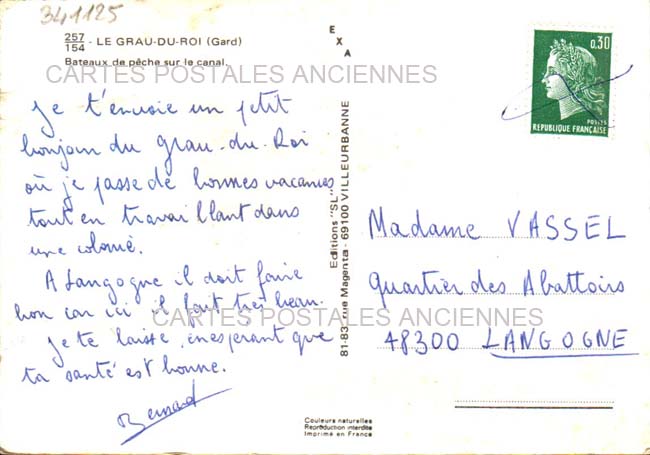 341125
257
154 - LE GRAU-DU-ROI (Gard)
Bateaux de pêche sur le canal.
CARTES POSTALES ANCIENNES
Je t'envoie un petit
bonjour du Grau-du-Roi
où je passe de bonnes vacances
tout en travaillant dans
une colonie.
A Langogne il doit faire
bon car ici il fait très beau.
CARTES POSTALES ANCIENNES
Je te laisse, en espérant que
ta santé est bonne.
Bernard
EXA
Editions "SL"
81-83, rue Magenta - 69100 VILLEURBANNE
Couleurs naturelles
Reproduction interdite
Imprimé en France
0,30
POSTES
REPUBLIQUE FRANÇAISE
Madame VASSEL
Quartier des Abattoirs
48300 LANGOGNE